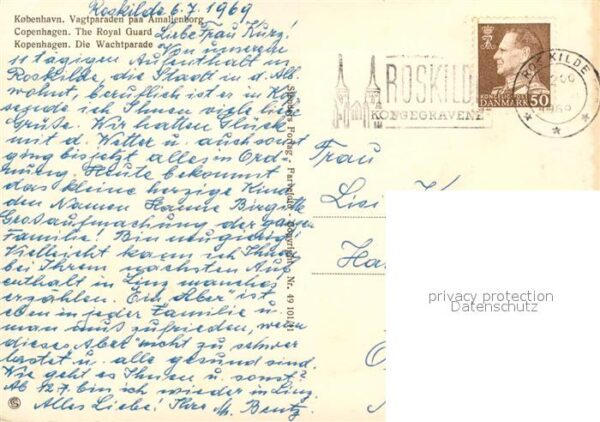 Roskilde 6.7.1969
København. Vagtparaden paa Amalienborg
Copenhagen. The Royal Guard
Kopenhagen. Die Wachtparade
Liebe Frau Kurz!
Von unserem
11 tägigen Aufenthalt in
Roskilde, die Stadt in d. Alb.
wohnt, beruflich ist er in K.
sende ich Ihnen viele liebe
Grüße. Wir hatten Glück
mit d. Wetter u. auch sonst
ging bis jetzt alles in Ord-
nung. Heute bekommt
das kleine herzige Kind
den Namen Hanne Birgitte
Großaufmachung der ganzen
Familie! Bin neugierig.
Vielleicht kann ich Ihnen
bei Ihrem nächsten Auf
enthalt in Linz manches
erzählen. Ein "Aber" ist
eben in jeder Familie u.
man muß zufrieden, wenn
dieses "Aber" nicht zu schwer
lastet u. alle gesund sind.
Wie geht es Ihnen u. sonst?
Ab 12.7. bin ich wieder in Linz.
Alles Liebe! Ihre M. Bentz
Forlag - Farvefoto - Copyright - Nr. 49 101/41
ROSKILDE
KONGEGRAVENE
KONGELIG POST
DANMARK 50
ROSKILDE
1969
Frau
Lisi K
Ha
privacy protection
Datenschutz